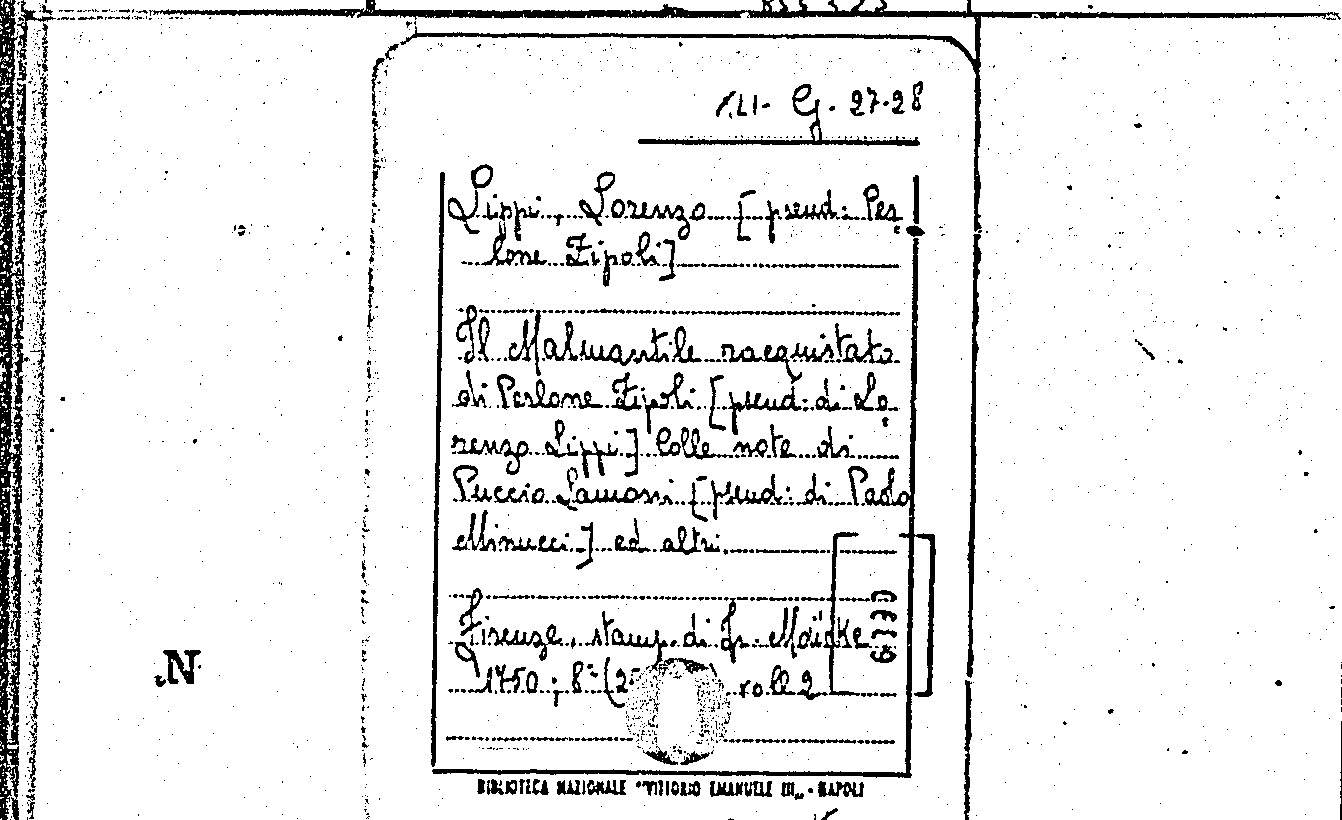 XLI- G. 27-28
Lippi, Lorenzo [pseud: Per=
lone Zipoli]
Il Malmantile racquistato
di Perlone Zipoli [pseud: di Lo=
renzo Lippi] Colle note di
Puccio Lamoni [pseud: di Paolo
Minucci] ed altri.
Firenze, stamp. di Fr. Moücke
1750; 8º (2 voll 2
BIBLIOTECA NAZIONALE "VITTORIO EMANUELE III„ - NAPOLI
N